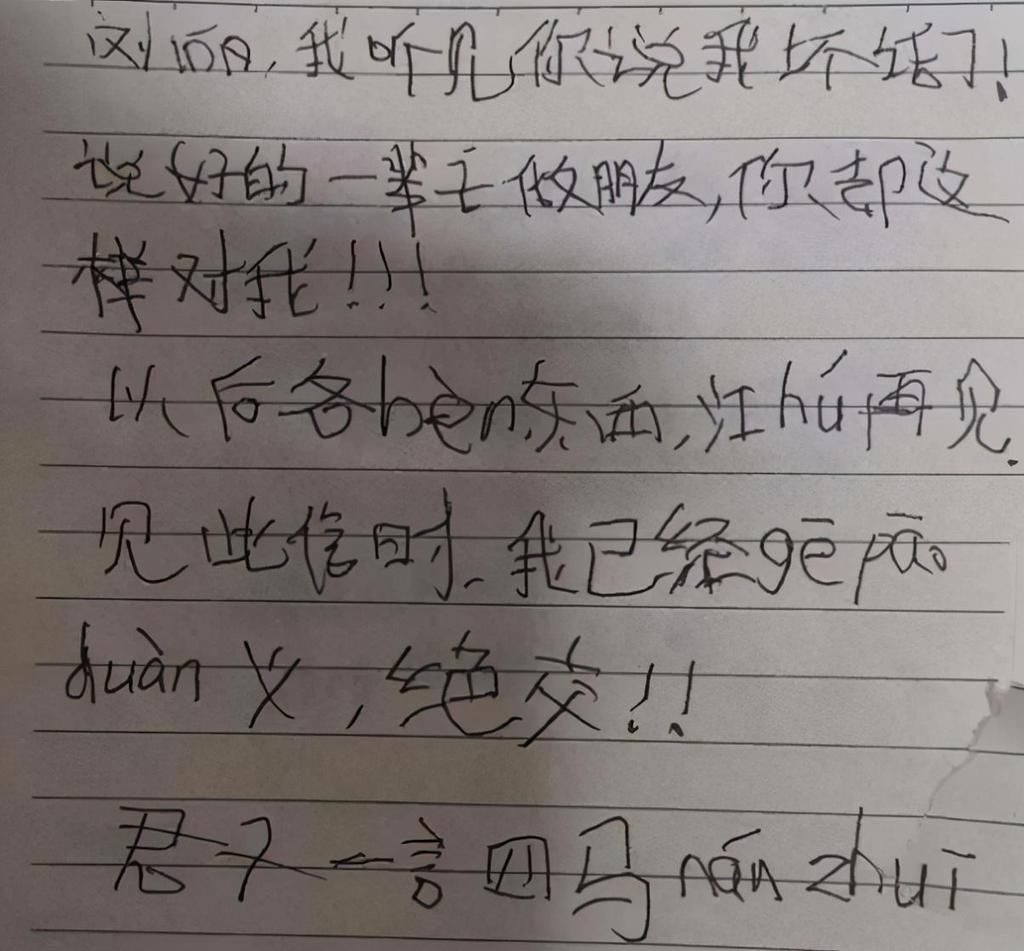 刘阳，我听见你说我坏话了！
说好的一辈子做朋友，你却这
样对我！！！
以后各bèn东西，江hú再见.
见此信时、我已经gē pāo
duàn义，绝交！！
君子一言四马nán zhuī